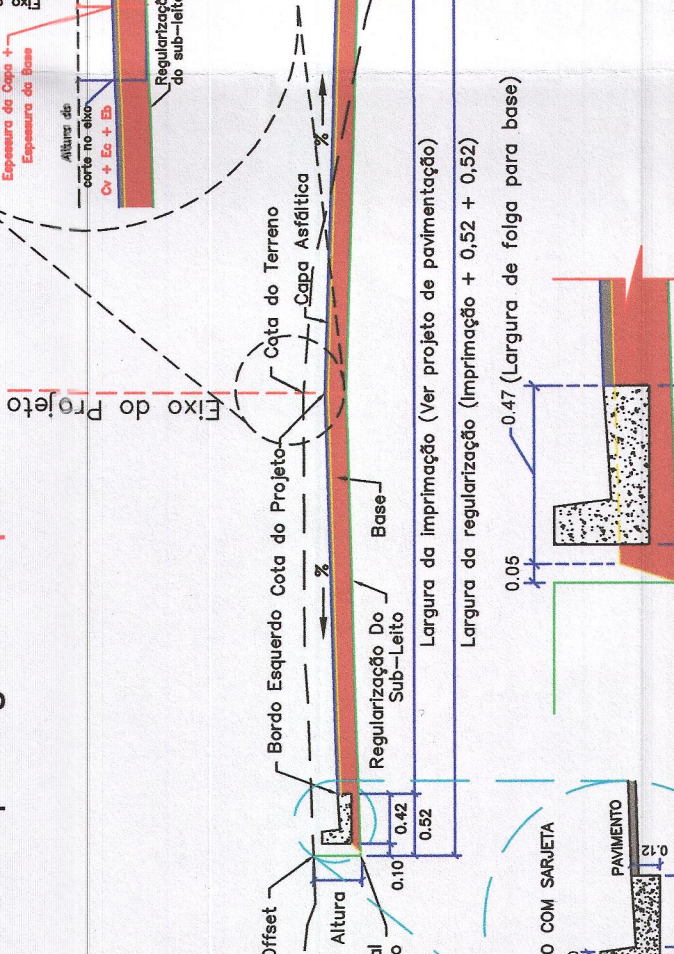 Eixo
Espessura da Capa +
Espessura da Base
Altura de
corte no eixo
Cv + Ec + Eb
Regularizaçã
do sub-leito
Eixo do Projeto
%
Cota do Terreno
Capa Asfáltica
Bordo Esquerdo
Cota do Projeto
%
Base
Regularização Do
Sub-Leito
Largura da imprimação (Ver projeto de pavimentação)
Largura da regularização (Imprimação + 0,52 + 0,52)
0.47 (Largura de folga para base)
0.05
0.42
0.52
0.10
Offset
Altura
COM SARJETA
PAVIMENTO
0.12